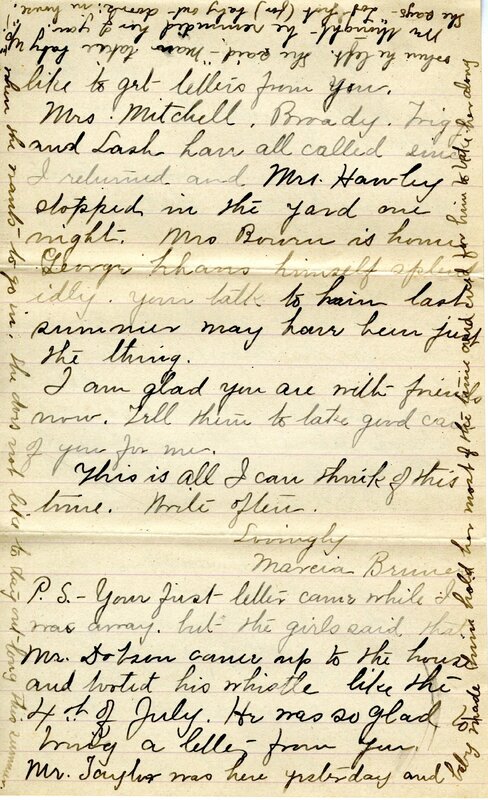 like to get letters from you.
Mrs. Mitchell, Broady, Trigg
and Lash have all called since
I returned and Mrs. Hawley
stopped in the yard one
night. Mrs Bourn is home
George behavs himself splen
idly. your talk to him last
summer may have been just
the thing.
I am glad you are with friends
now. Tell them to take good care
of you for me.
This is all I can think of this
time. Write often.
Lovingly
Marcia Bruner
P.S.- Your first letter came while I
was away. but the girls said that
Mr. Dobson came up to the house
and tooted his whistle like the
4th of July. He was so glad to
bring a letter from you.
Mr. Taylor was here yesterday and
baby made him hold her most of the time and cried for him to take her along
when he left. She said - "Man taken baby up"
thought he reminded her of you.
She says - Too hot (for) baby out doors; in house.
when she wants to go in; she does not like to stay out long this summer.